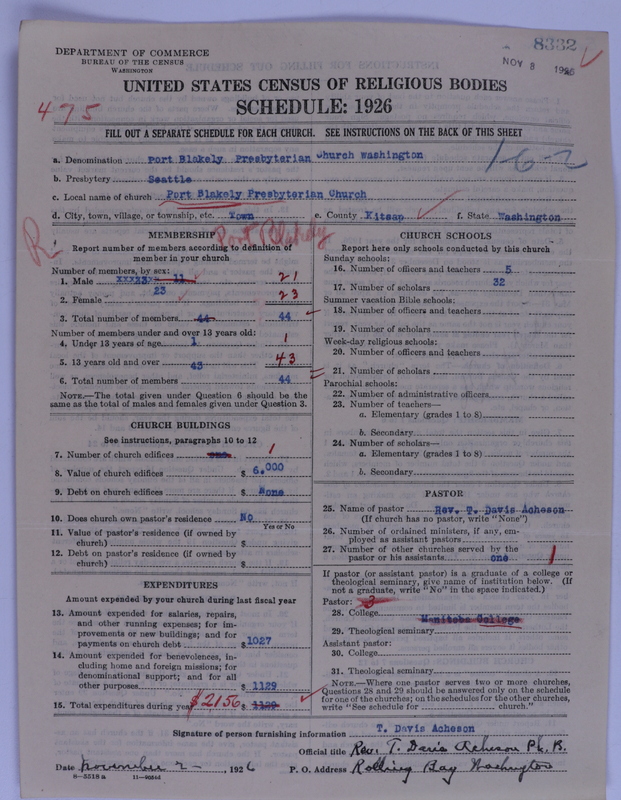 8332
DEPARTMENT OF COMMERCE
BUREAU OF THE CENSUS
WASHINGTON
NOV 8 1926
UNITED STATES CENSUS OF RELIGIOUS BODIES
475
SCHEDULE: 1926
FILL OUT A SEPARATE SCHEDULE FOR EACH CHURCH. SEE INSTRUCTIONS ON THE BACK OF THIS SHEET
a. Denomination Port Blakely Presbyterian Church Washington
1-6-2
b. Presbytery Seattle
c. Local name of church Port Blakely Presbyterian Church
d. City, town, village, or township, etc. Town e. County Kitsap f. State Washington
R
Port Blakely
MEMBERSHIP
Report number of members according to definition of
member in your church
Number of members, by sex:
1. Male 21
2. Female 23 23
3. Total number of members 44 44
Number of members under and over 13 years old:
4. Under 13 years of age 1 1
5. 13 years old and over 43 43
6. Total number of members 44
NOTE.—The total given under Question 6 should be
same as the total of males and females given under Question 3.
CHURCH BUILDINGS
See instructions, paragraphs 10 to 12
7. Number of church edifices one 1
8. Value of church edifices $ 6,000
9. Debt on church edifices $ None
10. Does church own pastor's residence No
Yes or No
11. Value of pastor's residence (if owned by
church) $
12. Debt on pastor's residence (if owned by
church) $
EXPENDITURES
Amount expended by your church during last fiscal year
13. Amount expended for salaries, repairs,
and other running expenses; for im-
provements or new buildings; and for
payments on church debt $ 1027
14. Amount expended for benevolences, in-
cluding home and foreign missions; for
denominational support; and for all
other purposes $ 1129
15. Total expenditures during year $2156 $ 1129
CHURCH SCHOOLS
Report here only schools conducted by this church
Sunday schools:
16. Number of officers and teachers 5
17. Number of scholars 32
Summer vacation Bible schools:
18. Number of officers and teachers
19. Number of scholars
Week-day religious schools:
20. Number of officers and teachers
21. Number of scholars
Parochial schools:
22. Number of administrative officers
23. Number of teachers—
a. Elementary (grades 1 to 8)
b. Secondary
24. Number of scholars—
a. Elementary (grades 1 to 8)
b. Secondary
PASTOR
25. Name of pastor Rev. T. Davis Acheson
(If church has no pastor, write "None")
26. Number of ordained ministers, if any, em-
ployed as assistant pastors
27. Number of other churches served by the
pastor or his assistants one 1
If pastor (or assistant pastor) is a graduate of a college or
theological seminary, give name of institution below. (If
not a graduate, write "No" in the space indicated.)
Pastor: 3
28. College Manitoba College
29. Theological seminary
Assistant pastor:
30. College
31. Theological seminary
NOTE.—Where one pastor serves two or more churches,
Questions 28 and 29 should be answered only on the schedule
for one of the churches; on the schedules for the other churches,
write "See schedule for church."
Signature of person furnishing information T. Davis Acheson
Official title Rev. T. Davis Acheson
Date November 2— , 1926 P. O. Address Rolling Bay Washington
8-5518 a